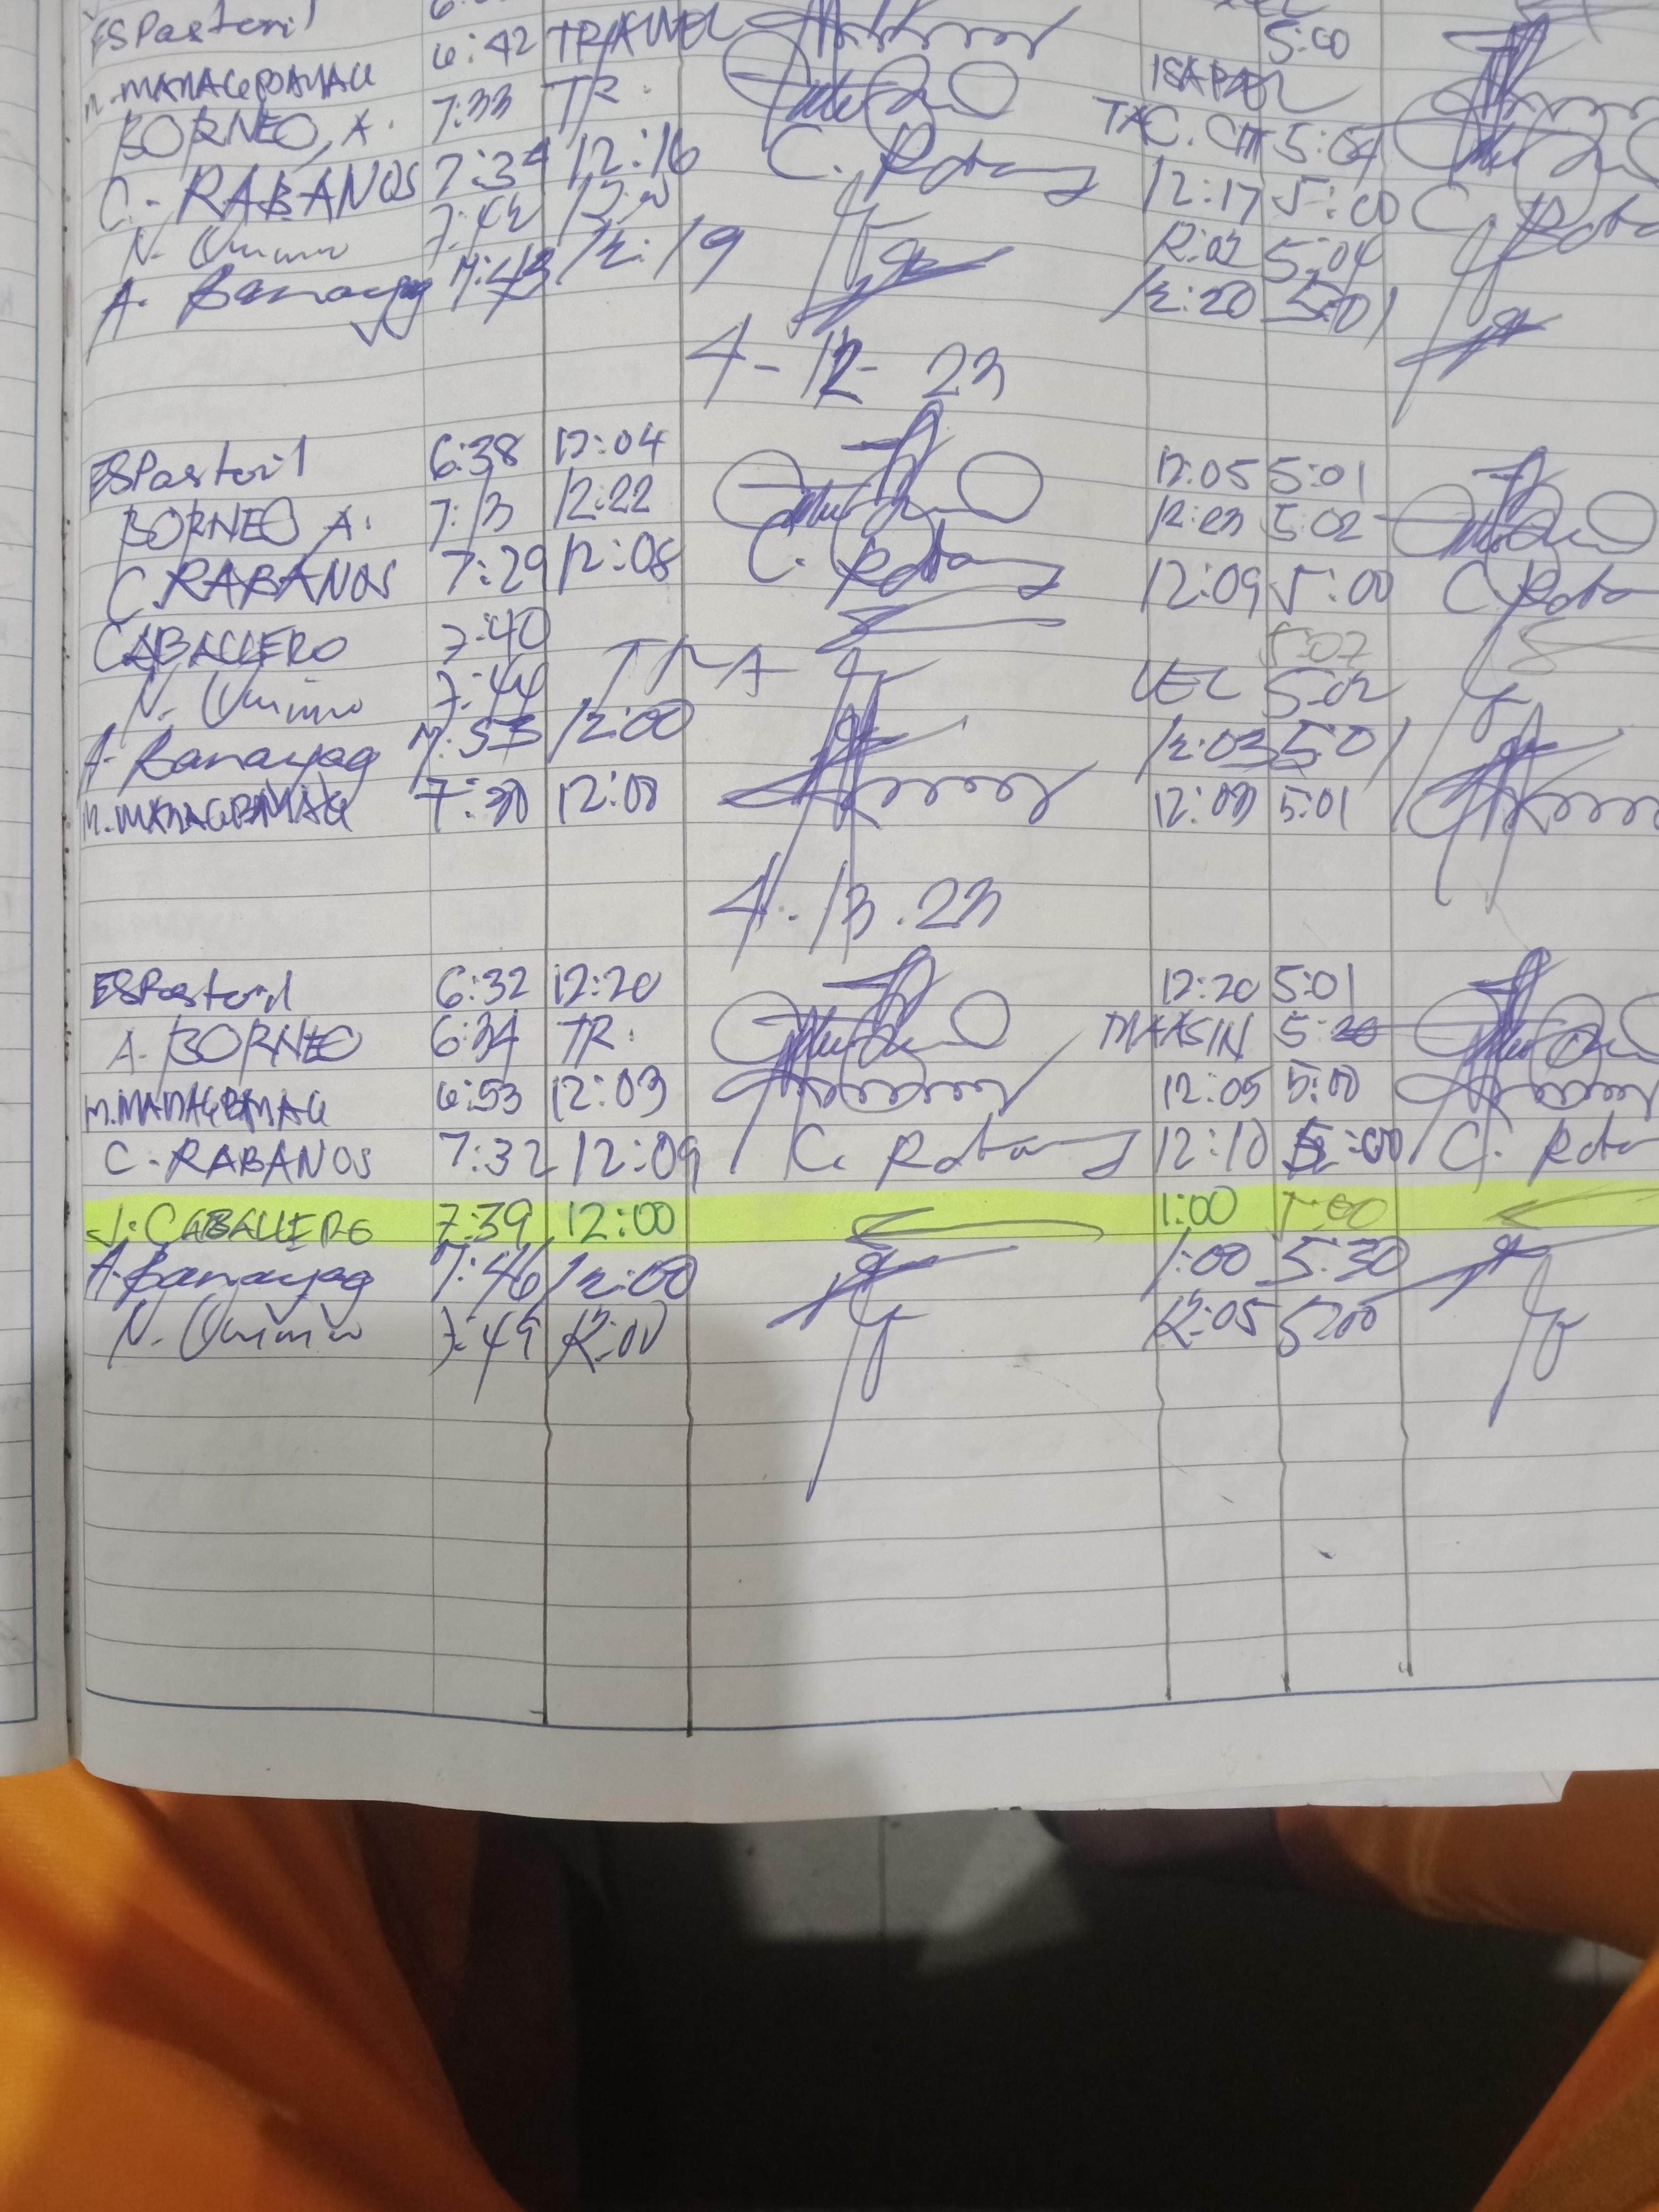 ESPasteril
6:42 TRAVEL 5:00
M. MANAGBANAG ISABEL
BORNEO, A. 7:33 TR. TAC. CIT 5:04
C. RABANOS 7:34 12:16 C. Raba 12:17 5:00 C. Raba
N. 7:42 12:00 12:02 5:04
A. Banayag 7:43 12:19 12:20 5:01
4-12-23
ESPasteril 6:38 12:04 12:05 5:01
BORNEO A. 7:13 12:22 12:23 5:02
C. RABANOS 7:29 12:08 C. Raba 12:09 5:00 C. Raba
CABALLERO 7:40 5:02
N. 7:44 TRA VEL 5:02
A. Banayag 7:53 12:00 12:03 5:01
M. MANAGBANAG 7:30 12:00 12:00 5:01
4.13.23
ESPasteril 6:32 12:20 12:20 5:01
A. BORNEO 6:34 TR. MAASIN 5:20
M. MANAGBANAG 6:53 12:03 12:05 5:00
C. RABANOS 7:32 12:09 C. Raba 12:10 5:00 C. Raba
J. CABALLERO 7:39 12:00 1:00 5:00
A. Banayag 7:46 12:00 1:00 5:30
N. 7:49 12:00 12:05 5:00